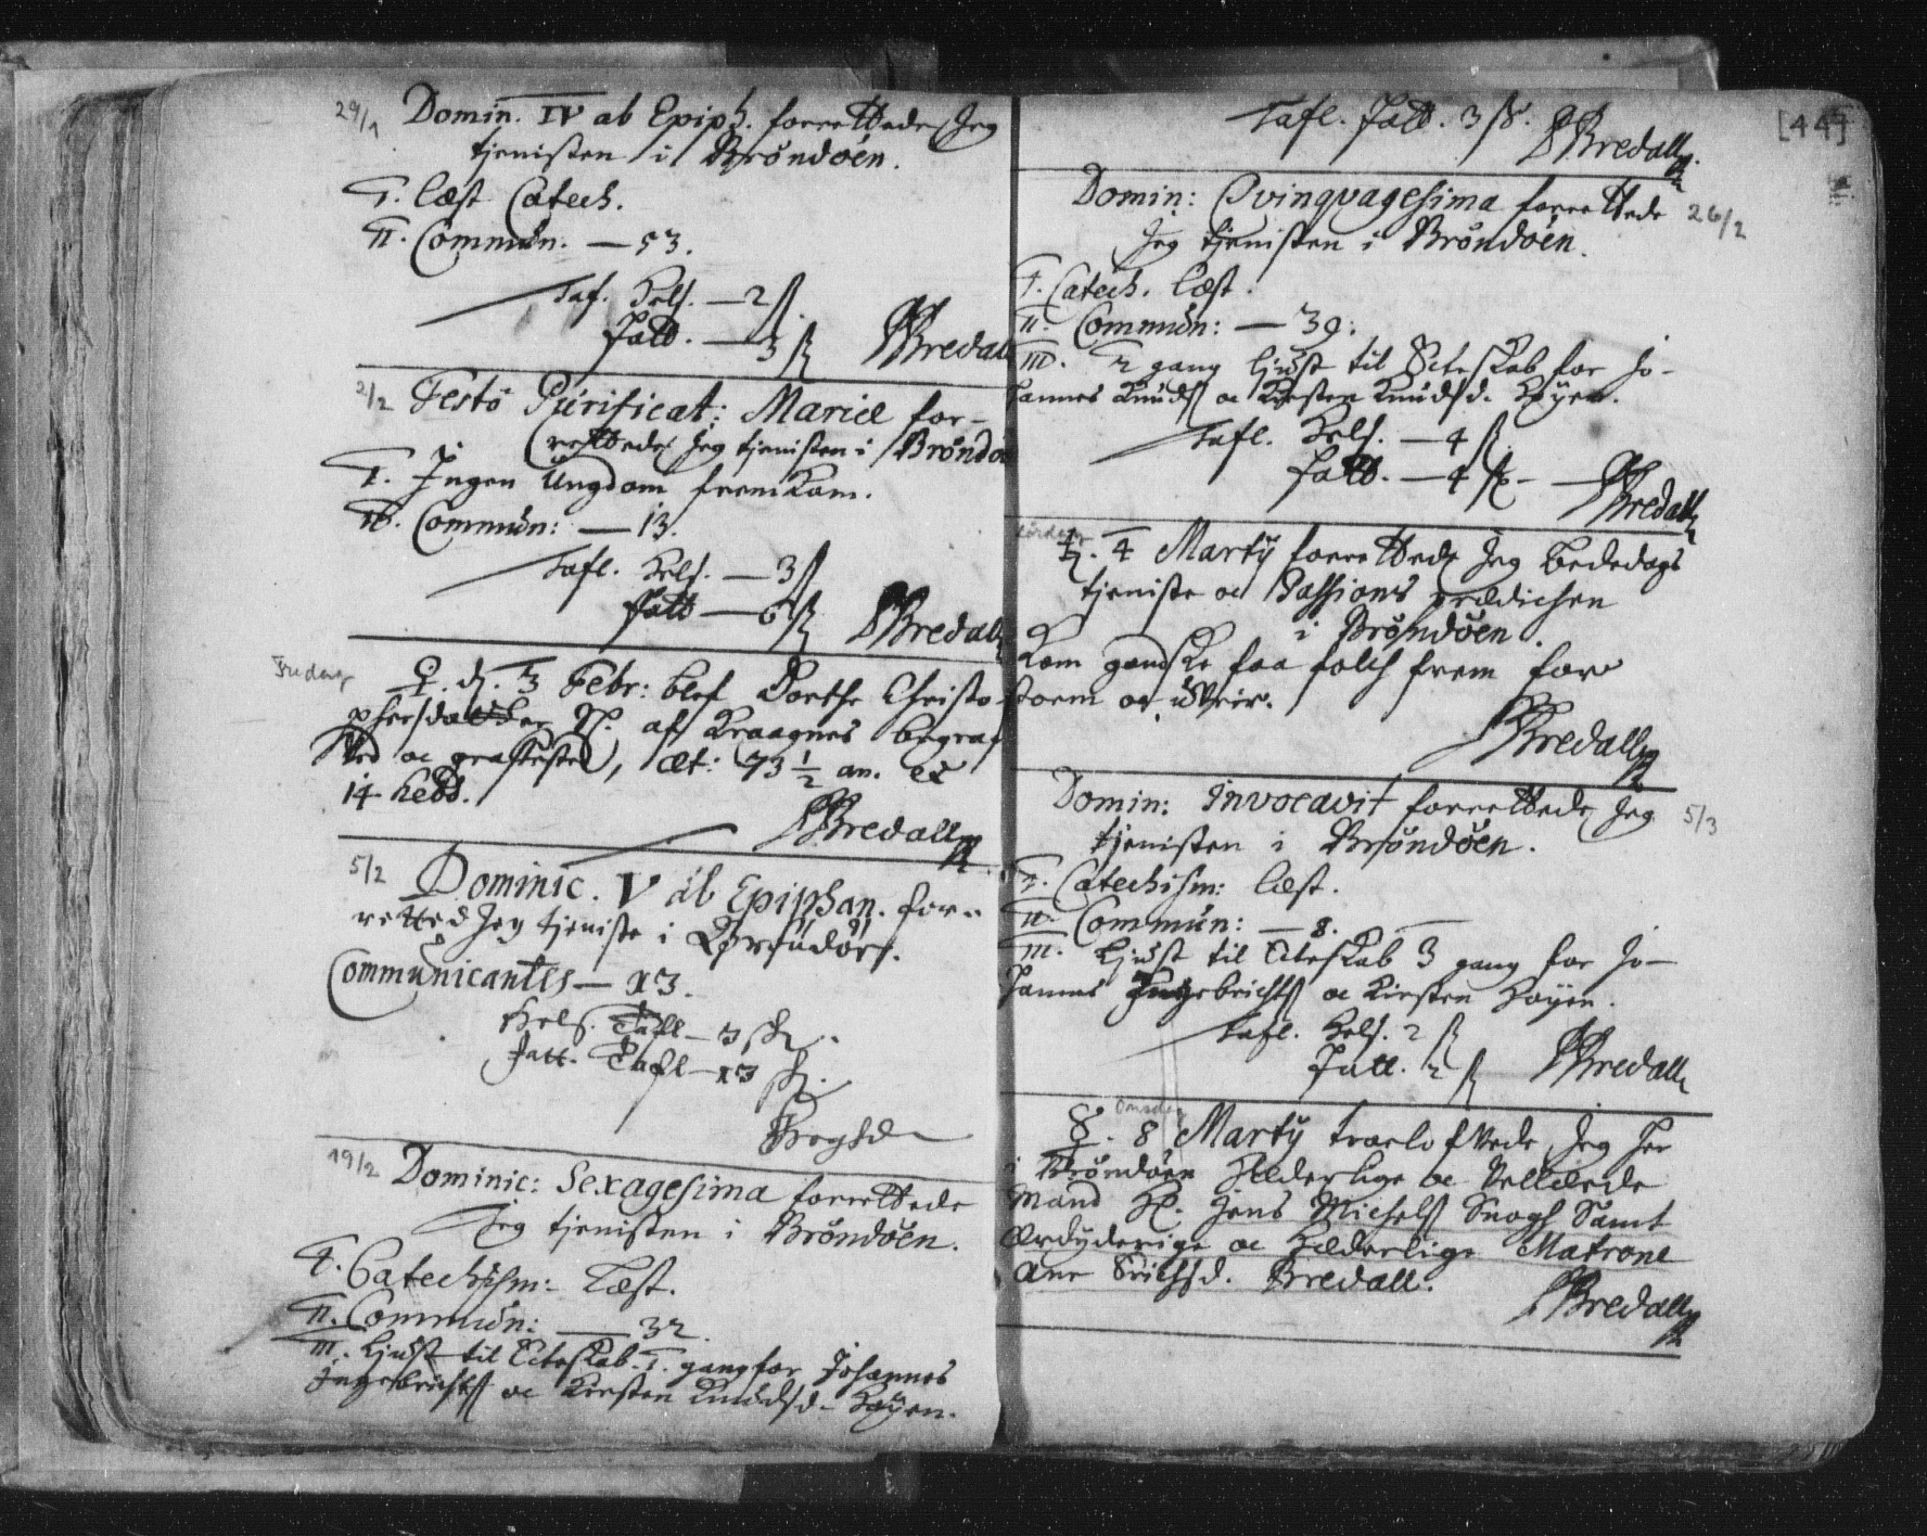 29/1 Domin. IV ab Epiph. forrettede Jeg
tjenisten i Brøndøen.
I. læst Catech.
II. Commun. — 53.
Taf. Hels. — 2 ß.
Fatt. — 3 ß Bredall
2/2 Festo Purificat: Mariæ for-
rettede Jeg tjenisten i Brøndø
I. Ingen Ungdom fremkom.
II. Commun: — 13.
Tafl. Hels. — 3 ß
Fatt — 6 ß Bredall
Fredag
♀. d. 3 Febr: blef Dorthe Christo-
phersdatter af Kraagnes begraf
ved oc graffæsted, æt: 73 1/2 an. et
14 hebd.
Bredall
5/2 Dominic. V ab Epiphan. for-
retted Jeg tjeniste i
Communicantes — 13.
Hels. Tafl — 3 ß.
Fatt. Tafl — 13 ß.
19/2 Dominic: Sexagesima forrettede
Jeg tjenisten i Brøndøen.
I. Catechism: Læst.
II. Commun: — 32.
III. Liust til Ecteskab I. gang for Johannes
Ingebrichtß oc Kirsten Knudsd. Høyen.
[44]
Tafl. Fatt. 3 ß. Bredall.
Domin: Qvinqvagesima forrettede 26/2
Jeg tjenisten i Brøndøen.
I. Catech. læst.
II. Commun: — 39.
III. 2 gang liust til Ecteskab for Jo-
hannes Knudß oc Kirsten Knudsd. Høyen.
Tafl. Hels. — 4 ß
Fatt. — 4 ß — Bredall
Lördag
♄. 4 Martij forrettede Jeg Bededags
tjeniste oc Passions prædichen
i Brøndøen.
Kom gandske faa folch frem for
storm oc uVeir.
Bredall
Domin: Invocavit forrettede Jeg 5/3
tjenisten i Brøndøen.
I. Catechism: læst.
II. Commun: — 8.
III. liust til Ecteskab 3 gang for Jo-
hannes Ingebrichtß oc Kirsten Høyen.
Tafl. Hels. 2 ß
Fatt. 2 ß Bredall
Onsdag
☿. 8 Martij troelofVede Jeg her
i Brøndøen Hæderlige oc Vellærde
Mand Hr. Jens Michelß Snogh Samt
Ærdyderige oc Hæderlige Matrone
Ane Erichsd. Bredall.
Bredall